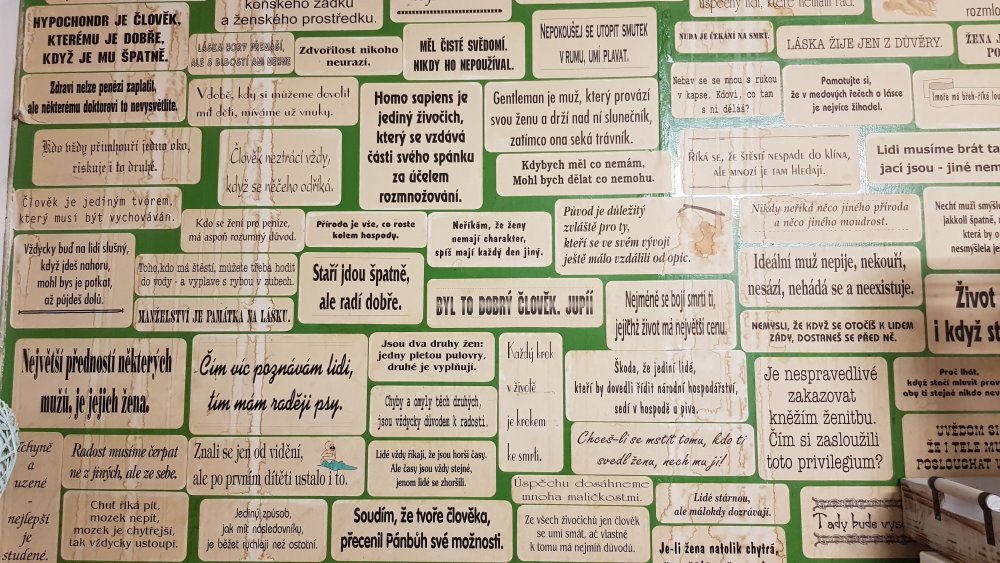 koňského zadku
a ženského prostředku.
HYPOCHONDR JE ČLOVĚK,
KTERÉMU JE DOBŘE,
KDYŽ JE MU ŠPATNĚ.
LÁSKA HORY PŘENÁŠÍ,
ALE S BLBOSTÍ ANI NEHNE
Zdvořilost nikoho
neurazí.
MĚL ČISTÉ SVĚDOMÍ.
NIKDY HO NEPOUŽÍVAL.
NEPOKOUŠEJ SE UTOPIT SMUTEK
V RUMU, UMÍ PLAVAT.
úspěchy lidí, které nemám rád.
NUDA JE ČEKÁNÍ NA SMRT.
LÁSKA ŽIJE JEN Z DŮVĚRY.
rozmlo
ŽENA J
PO
Zdraví nelze penězi zaplatit,
ale některému doktorovi to nevysvětlíte.
V době, kdy si můžeme dovolit
mít děti, míváme už vnuky.
Homo sapiens je
jediný živočich,
který se vzdává
části svého spánku
za účelem
rozmnožování.
Gentleman je muž, který provází
svou ženu a drží nad ní slunečník,
zatímco ona seká trávník.
Nebav se se mnou s rukou
v kapse. Kdoví, co tam
s ní děláš?
Pamatujte si,
že v medových řečech o lásce
je nejvíce žihadel.
Kdo vždy přimhouří jedno oko,
riskuje i to druhé.
Člověk neztrácí vždy,
když se něčeho odříká.
Kdybych měl co nemám,
Mohl bych dělat co nemohu.
Říká se, že štěstí nespadne do klína,
ale mnozí je tam hledají.
Lidi musíme brát ta
jací jsou - jiné nem
Člověk je jediným tvorem,
který musí být vychováván.
Kdo se žení pro peníze,
má aspoň rozumný důvod.
Příroda je vše, co roste
kolem hospody.
Neříkám, že ženy
nemají charakter,
spíš mají každý den jiný.
Původ je důležitý
zvláště pro ty,
kteří se ve svém vývoji
ještě málo vzdálili od opic.
Nikdy neříká něco jiného příroda
a něco jiného moudrost.
Nechť muži smýšle
jakkoli špatně,
která by o
nesmýšlela je
Vždycky buď na lidi slušný,
když jdeš nahoru,
mohl bys je potkat,
až půjdeš dolů.
Toho,kdo má štěstí, můžete třeba hodit
do vody - a vyplave s rybou v zubech.
MANŽELSTVÍ JE PAMÁTKA NA LÁSKU.
Staří jdou špatně,
ale radí dobře.
BYL TO DOBRÝ ČLOVĚK. JUPÍÍ
Nejméně se bojí smrti ti,
jejichž život má největší cenu.
Ideální muž nepije, nekouří,
nesází, nehádá se a neexistuje.
NEMYSLI, ŽE KDYŽ SE OTOČÍŠ K LIDEM
ZÁDY, DOSTANEŠ SE PŘED NĚ.
Život
i když st
Největší předností některých
mužů, je jejich žena.
Čím víc poznávám lidi,
tím mám raději psy.
Jsou dva druhy žen:
jedny pletou pulovry,
druhé je vyplňují.
Chyby a omyly těch druhých,
jsou vždycky důvodem k radosti.
Každý krok
v životě
je krokem
ke smrti.
Škoda, že jediní lidé,
kteří by dovedli řídit národní hospodářství,
sedí v hospodě u piva.
Chceš-li se mstít tomu, kdo ti
svedl ženu, nech mu ji!
Je nespravedlivé
zakazovat
kněžím ženitbu.
Čím si zasloužili
toto privilegium?
Proč lhát,
když stačí mluvit prav
aby ti stejně nikdo nevě
UVĚDOM SI
ŽE I TELE MU
POSLOUCHAT U
chyně
a
uzené
-
nejlepší
je
studené.
Radost musíme čerpat
ne z jiných, ale ze sebe.
Znali se jen od vidění,
ale po prvním dítěti ustalo i to.
Lidé vždy říkají, že jsou horší časy.
Ale časy jsou vždy stejné,
jenom lidé se zhoršili.
Úspěchu dosáhneme
mnoha maličkostmi.
Lidé stárnou,
ale málokdy dozrávají.
Chuť říká pít,
mozek nepít,
mozek je chytřejší,
tak vždycky ustoupí.
Jediný způsob,
jak mít následovníky,
je běžet rychleji než ostatní.
Soudím, že tvoře člověka,
přecenil Pánbůh své možnosti.
Ze všech živočichů jen člověk
se umí smát, ač vlastně
k tomu má nejmíň důvodů.
Je-li žena natolik chytrá,
Tady bude vys